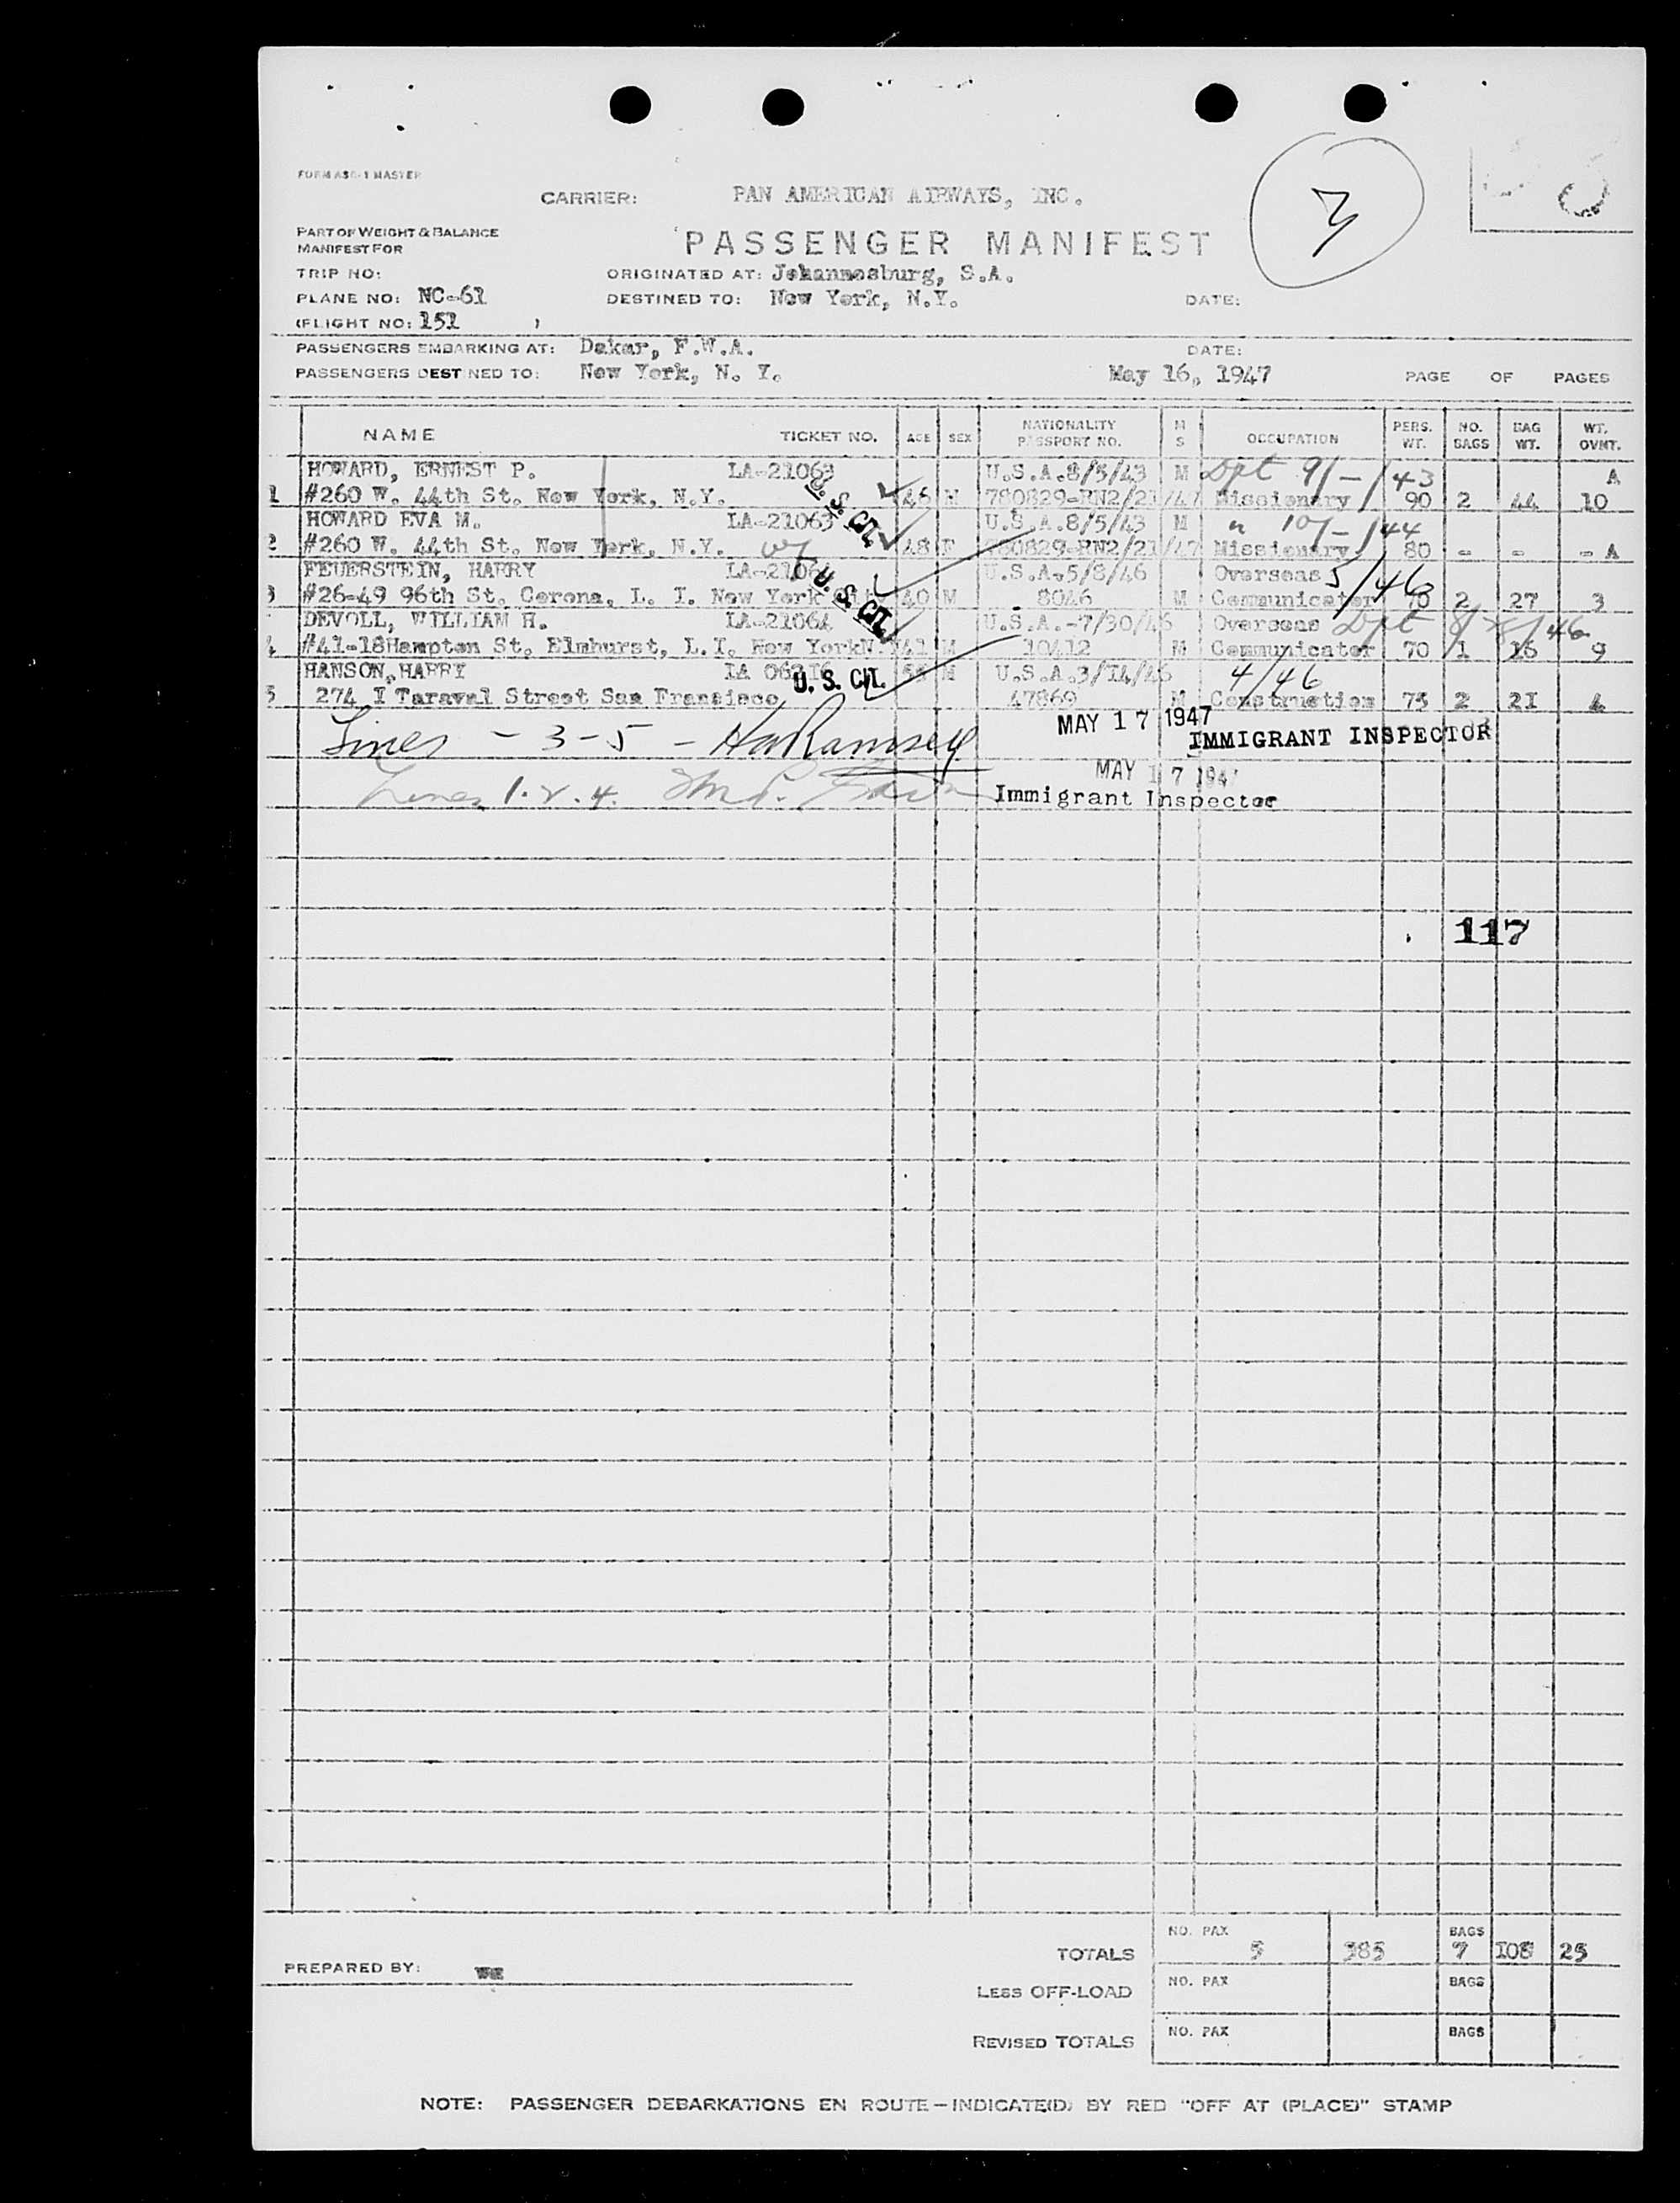 FORM ASC-1 MASTER
CARRIER: PAN AMERICAN AIRWAYS, INC.
3
PART OF WEIGHT & BALANCE
MANIFEST FOR
PASSENGER MANIFEST
TRIP NO: ORIGINATED AT: Johannesburg, S.A.
PLANE NO: NC-61 DESTINED TO: New York, N.Y. DATE:
(FLIGHT NO: 151 )
PASSENGERS EMBARKING AT: Dakar, F.W.A. DATE:
PASSENGERS DESTINED TO: New York, N. Y. May 16, 1947 PAGE OF PAGES
NAME TICKET NO. AGE SEX NATIONALITY PASSPORT NO. M S OCCUPATION PERS. WT. NO. BAGS BAG WT. WT. OVNT.
HOWARD, ERNEST P. LA-21063 U.S.A.8/5/43 M Dpt 9/-/43 A
1 #260 W. 44th St. New York, N.Y. U.S. CIT. 46 M 780829-RN2/21/47 Missionary 90 2 44 10
HOWARD EVA M. LA-21063 U.S.A.8/5/43 M " 10/-/44
2 #260 W. 44th St. New York, N.Y. 48 F 780829-RN2/21/47 Missionary 80 - - - A
FEUERSTEIN, HARRY LA-2106 U.S.A.5/8/46 Overseas 5/46
3 #26-49 96th St. Corona, L. I. New York City U.S. CIT. 40 M 8046 M Communicator 70 2 27 3
DEVOLL, WILLIAM H. LA-21064 U.S.A.-7/30/46 Overseas Dpt 8/ /46
4 #41-18Hampton St. Elmhurst, L.I. New York N. 41 M 10412 M Communicator 70 1 16 9
HANSON,HARRY LA U. S. CIT. M U.S.A.3/14/46 4/46
5 274 I Taraval Street San Francisco 47869 M Construction 75 2 21 4
Lines - 3-5 - Ramsey MAY 17 1947 IMMIGRANT INSPECTOR
Lines 1.2.4. MAY 17 194
Immigrant Inspector
117
TOTALS NO. PAX 5 385 BAGS 7 108 25
PREPARED BY:
LESS OFF-LOAD NO. PAX BAGS
REVISED TOTALS NO. PAX BAGS
NOTE: PASSENGER DEBARKATIONS EN ROUTE—INDICATE(D) BY RED "OFF AT (PLACE)" STAMP